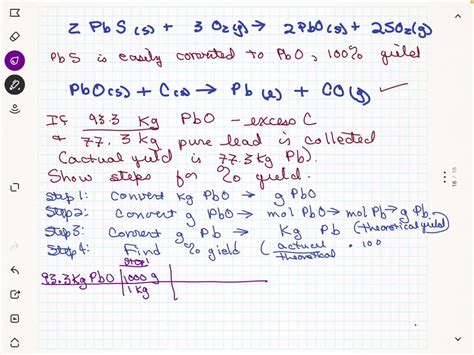 2 PbS(s) + 3 O2(g) → 2PbO(s) + 2SO2(g)
PbS is easily converted to PbO, 100% yield
PbO(s) + C(s) → Pb(l) + CO(g)
If 93.3 Kg PbO - excess C
& 77.3 kg pure lead is collected
(actual yield is 77.3 kg Pb).
Show steps for % yield.
Step 1: Convert Kg PbO → g PbO
Step 2: Convert g PbO → mol PbO → mol Pb → g Pb
Step 3: Convert g Pb → Kg Pb (theoretical yield)
Step 4: Find % yield (actual/theoretical · 100
Step 1
93.3 Kg PbO | 1000 g
1 Kg
16 / 16